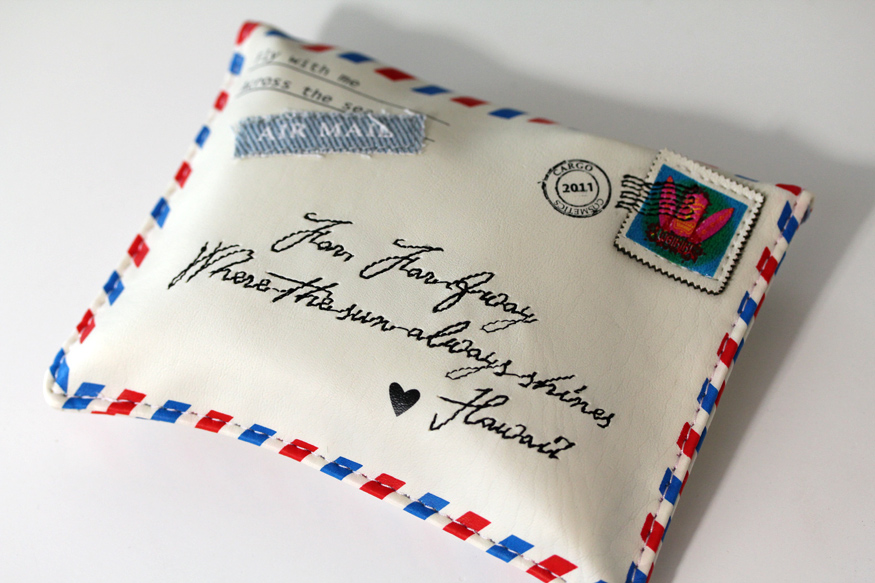 Fly with me
across the sea
AIR MAIL
CARGO
2011
COSMETICS
Far, Far Away
Where the sun always shines
Hawaii